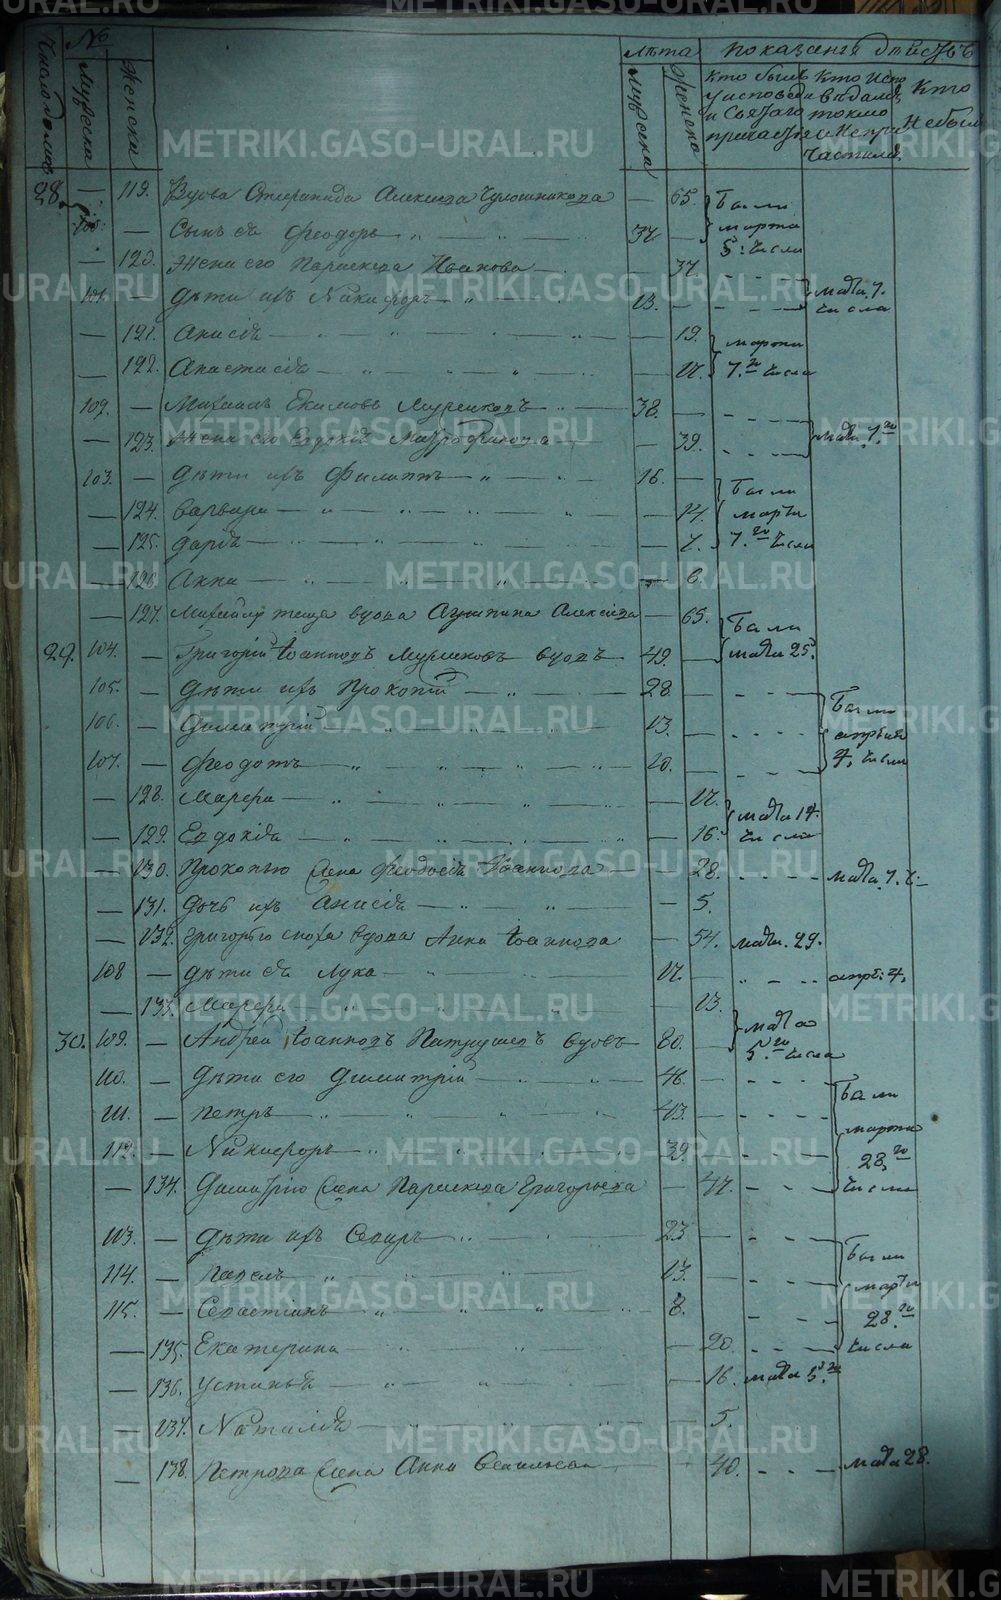 Число домовъ
№
Мужеска
Женска
Лѣта
Мужеска
Женска
Показанія дѣйствъ
Кто былъ у исповеди и Святаго причастія
Кто исповѣдался токмо и не причастился
Кто не былъ
28. — 119. Вдова Алексѣева — 65. Были
100. — Сынъ ея Феодоръ 37 — марта 5. числа
— 120. Жена его Параскева Иванова — 37.
101. — Дѣти ихъ Никифоръ 13. — марта 7. числа
— 121. Анисія — 19. марта
— 122. Анастасія — 17. 7.го числа
102. — Михаилъ Екимовъ 38. —
— 123. Жена его Евдокія — 39. марта 7.го
103. — Дѣти ихъ Филиппъ 16. — Были
— 124. Варвара — 14. марта
— 125. Дарья — 7. 7.го числа
— 126. Анна — 6.
— 127. Михаилу теща вдова Агрипина Алексѣева — 65. Были
29. 104. — Григорій Іоанновъ вдовъ 49. — марта 25.
105. — Дѣти ихъ Прокопій 28. — Были
106. — Димитрій 13. — апрѣля
107. — Феодотъ 10. — 4, числа
— 128. Марфа — 17. марта 14.
— 129. Евдокія — 16. числа
— 130. Прокопью жена Феодосья Іоаннова — 28. марта 7. ч.
— 131. Дочь ихъ Анисія — 5.
— 132. Григорью сноха вдова Анна Іоаннова — 54. марта 29.
108 — Дѣти ея Лука 17. — апрѣ: 4,
— 133. Марфа — 13. марта
30. 109. — Андрей Іоанновъ вдовъ 80. — 5.го числа
110. — Дѣти его Димитрій 46. — Были
111. — Петръ 43. — марта
112. — Никифоръ 39. — 28.го
— 134. Димитрію жена Параскева Григорьева — 47. числа
113. — Дѣти ихъ 23 — Были
114. — Павелъ 13. — марта
115. — Севастіанъ 8. — 28.го
— 135. Екатерина — 20. числа
— 136. Устинья — 16. марта 5.го
— 137. Наталія — 5.
— 138. Петрова жена Анна — 40. марта 28.
METRIKI.GASO-URAL.RU